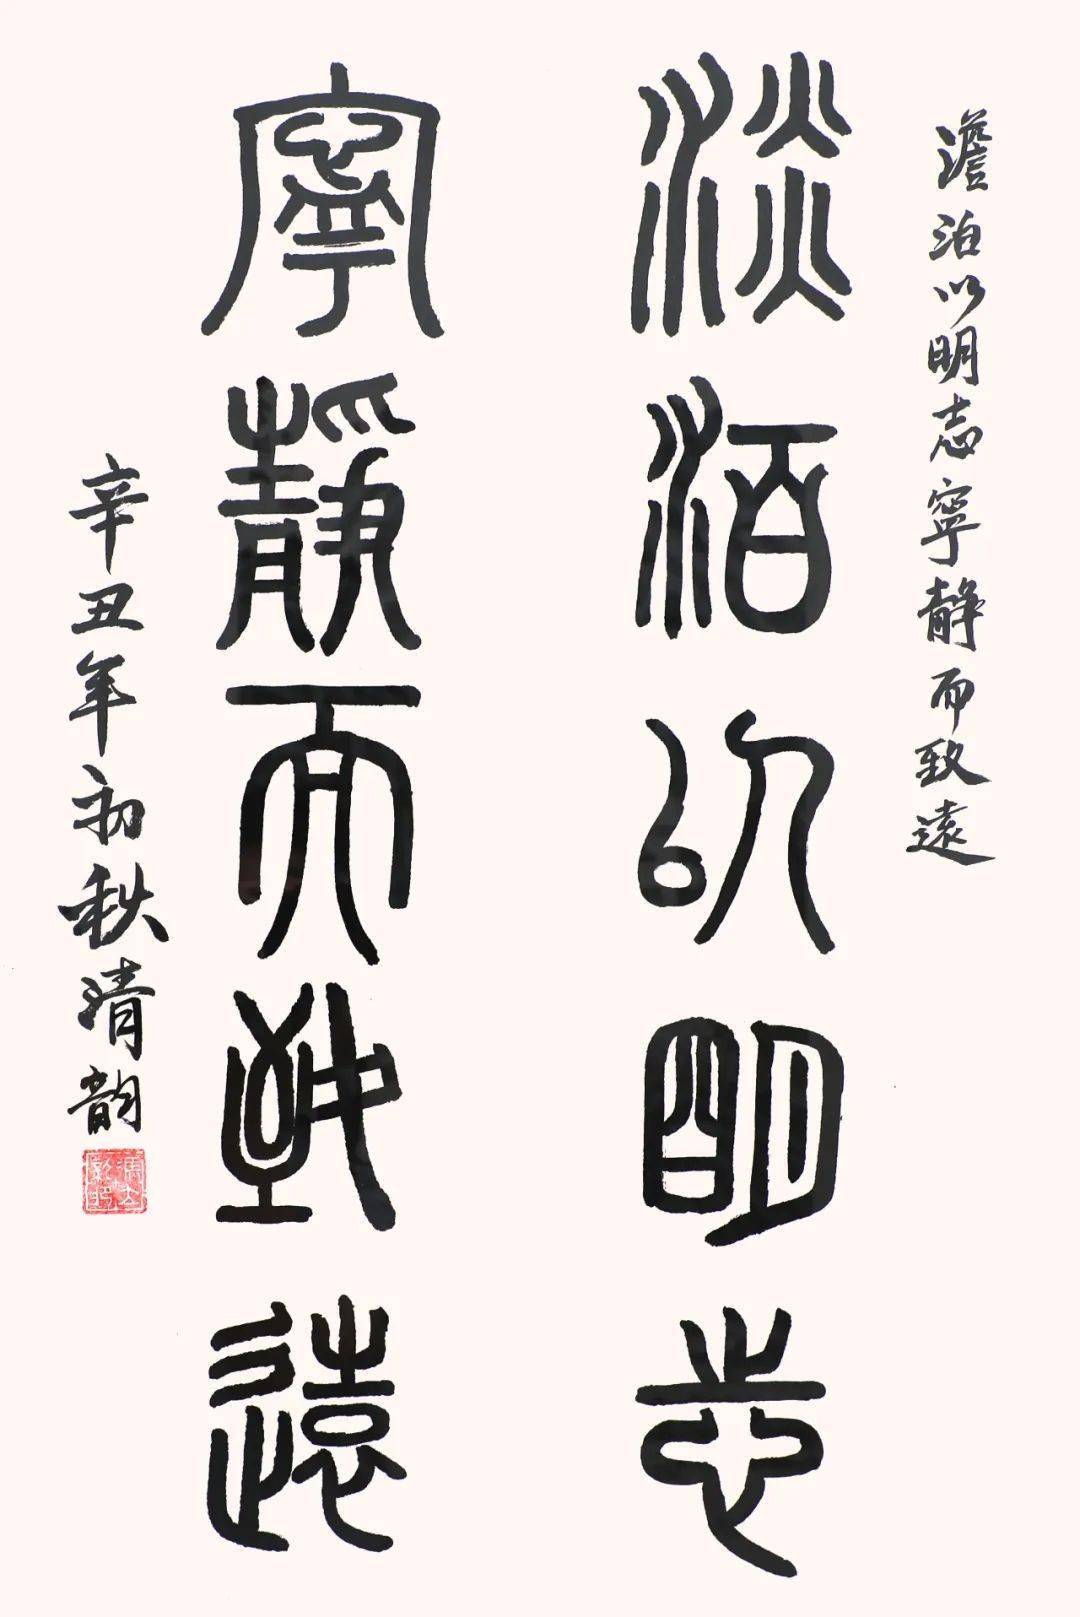 澹泊以明志寧静而致遠
淡泊以明志
寧靜而致遠
辛丑年初秋清韵